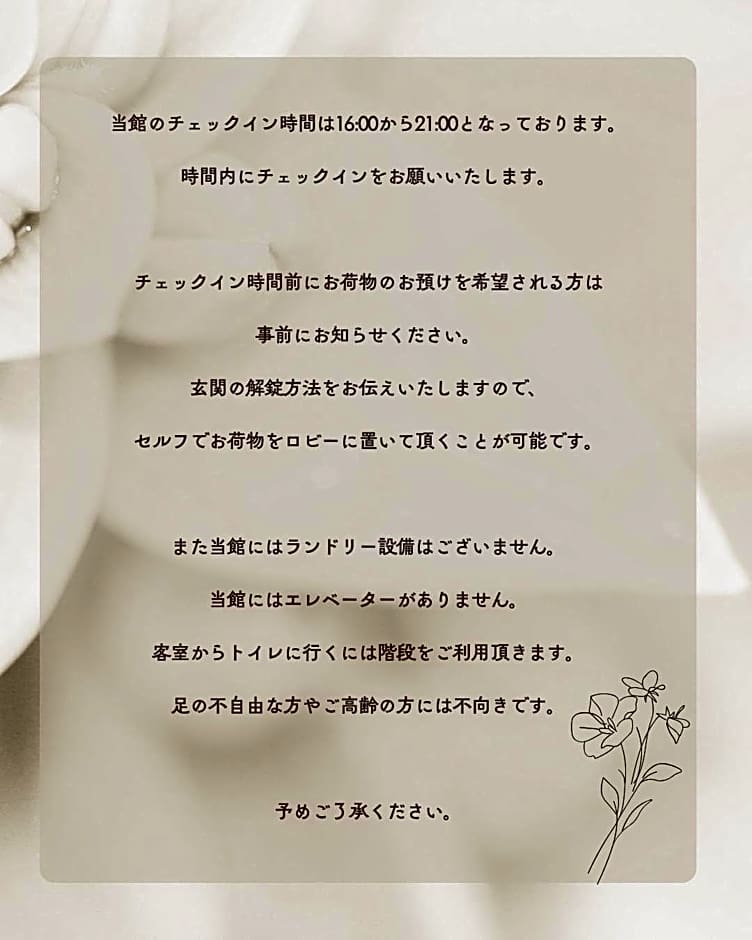 当館のチェックイン時間は16:00から21:00となっております。
時間内にチェックインをお願いいたします。
チェックイン時間前にお荷物のお預けを希望される方は
事前にお知らせください。
玄関の解錠方法をお伝えいたしますので、
セルフでお荷物をロビーに置いて頂くことが可能です。
また当館にはランドリー設備はございません。
当館にはエレベーターがありません。
客室からトイレに行くには階段をご利用頂きます。
足の不自由な方やご高齢の方には不向きです。
予めご了承ください。